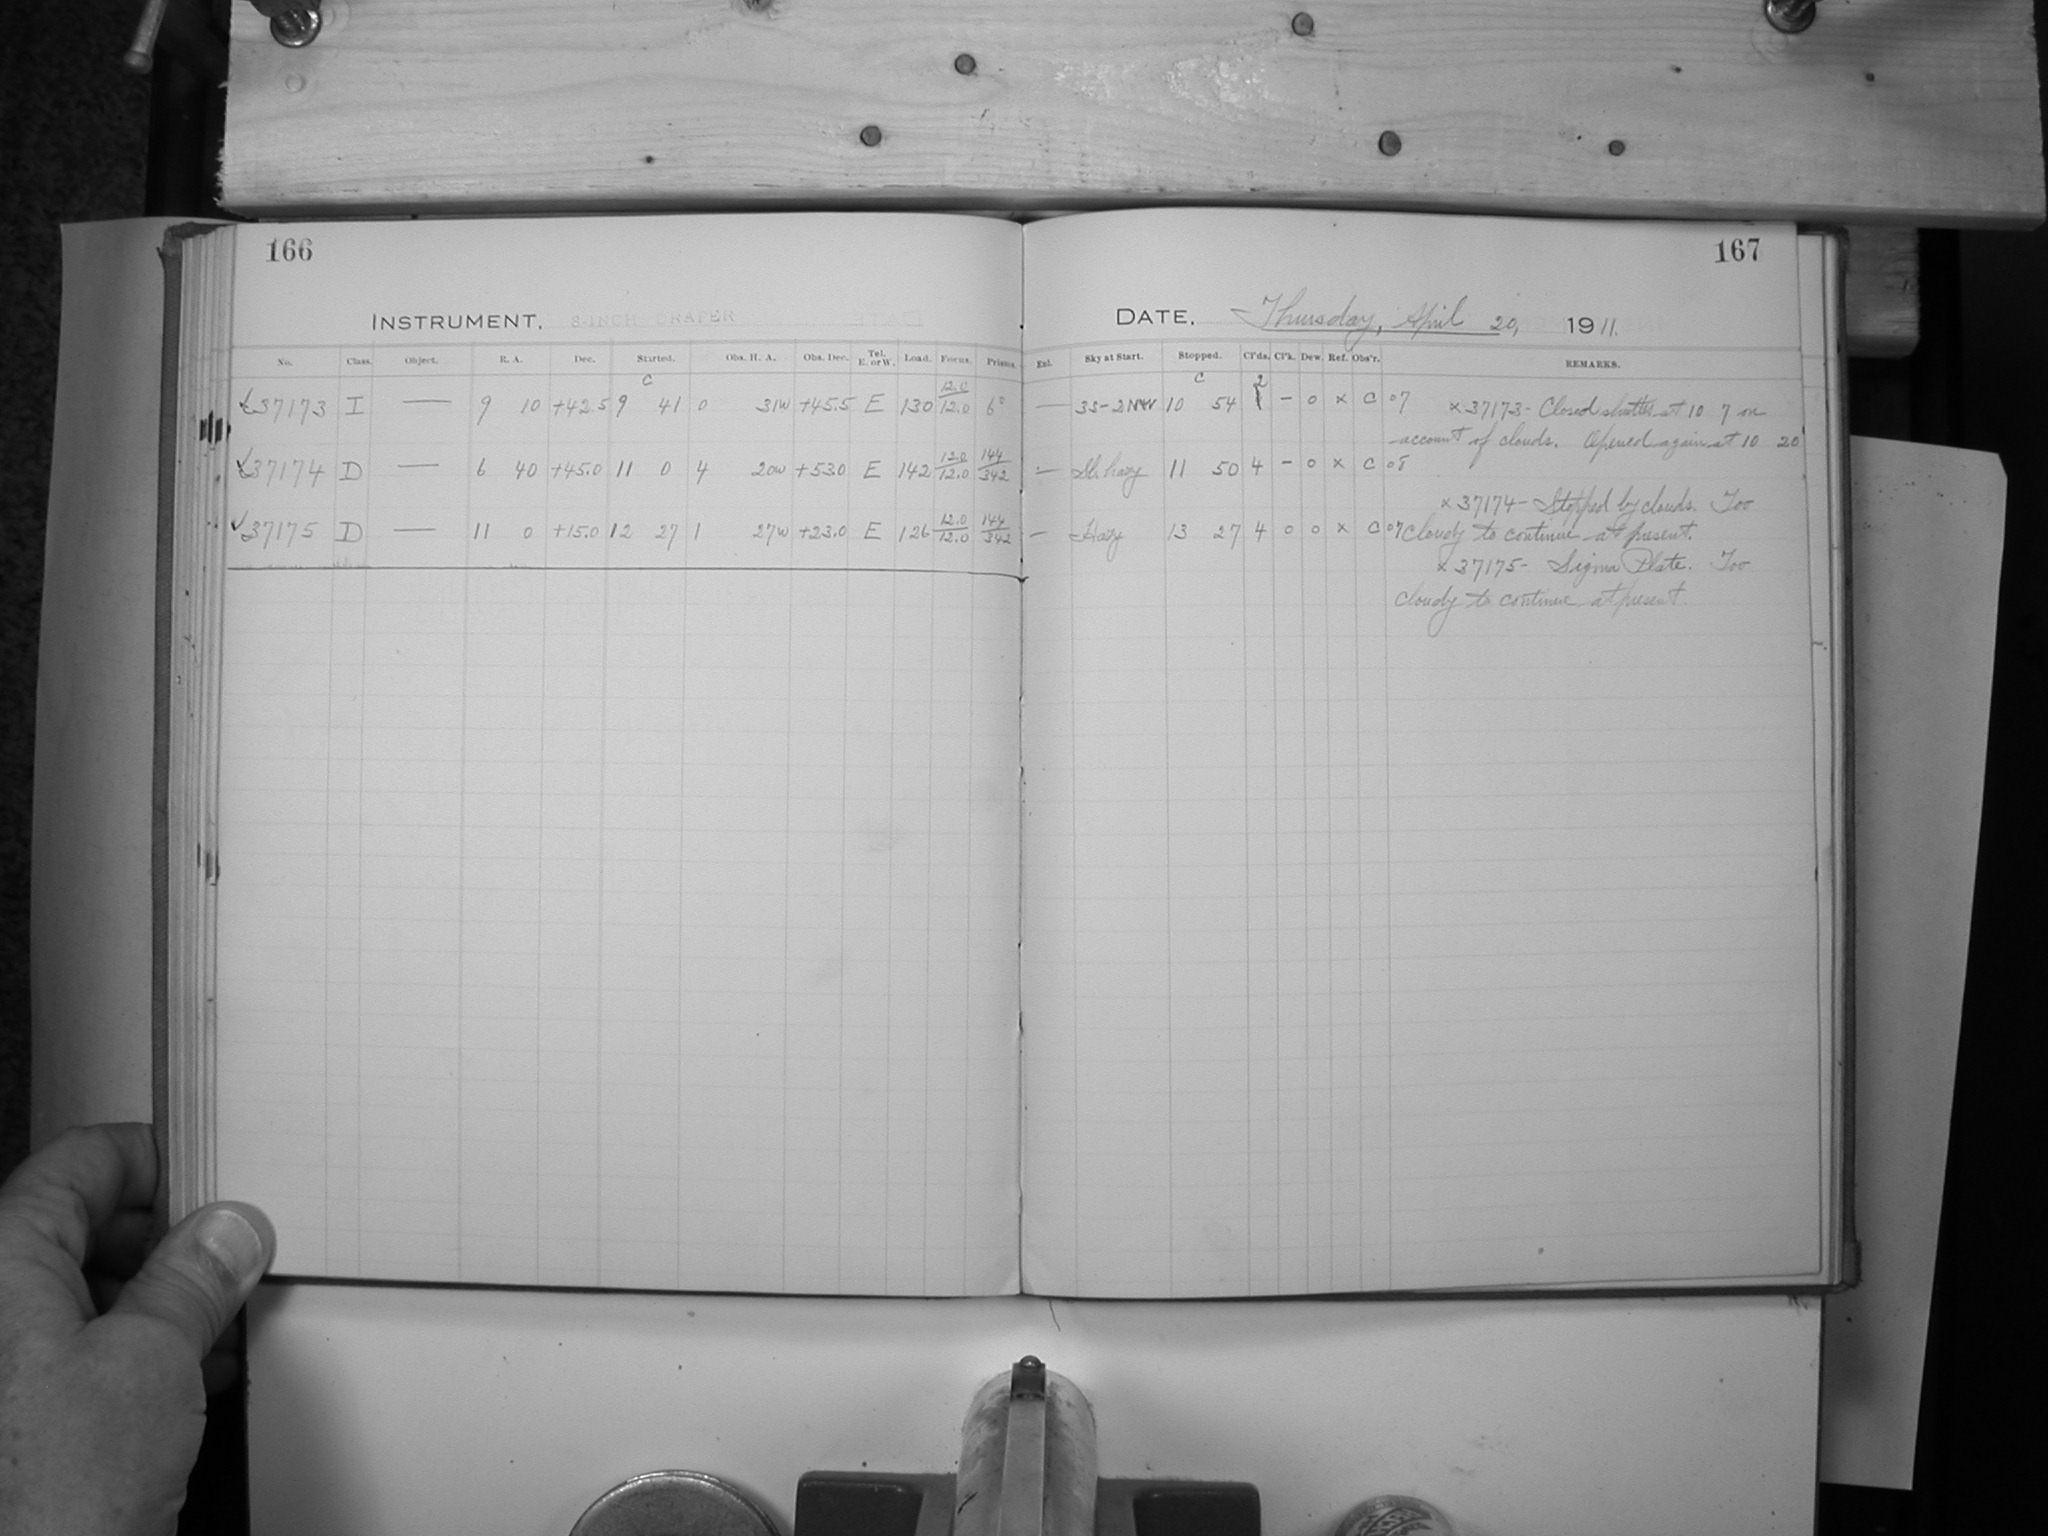 166
INSTRUMENT. 8-INCH DRAPER
No. Class. Object. R. A. Dec. Started. Obs. H. A. Obs. Dec. Tel. E. or W. Load. Focus. Prisms.
C
37173 I — 9 10 +42.5 9 41 0 31w +45.5 E 130 12.0/12.0 6°
37174 D — 6 40 +45.0 11 0 4 20w +53.0 E 142 12.0/12.0 144/342
37175 D — 11 0 +15.0 12 27 1 27w +23.0 E 126 12.0/12.0 144/342
167
DATE. Thursday, April 20, 1911.
Exl. Sky at Start. Stopped. Cl'ds. Cl'k. Dew. Ref. Obs'r. REMARKS.
C 2
— 3S-2NW 10 54 – 0 x C 07 x 37173- Closed shutter at 10 7 on
account of clouds. Opened again at 10 20
— Sl. hazy 11 50 4 – 0 x C 08
x 37174- Stopped by clouds. Too
— Hazy 13 27 4 0 0 x C 07 cloudy to continue at present.
x 37175- Sigma Plate. Too
cloudy to continue at present.